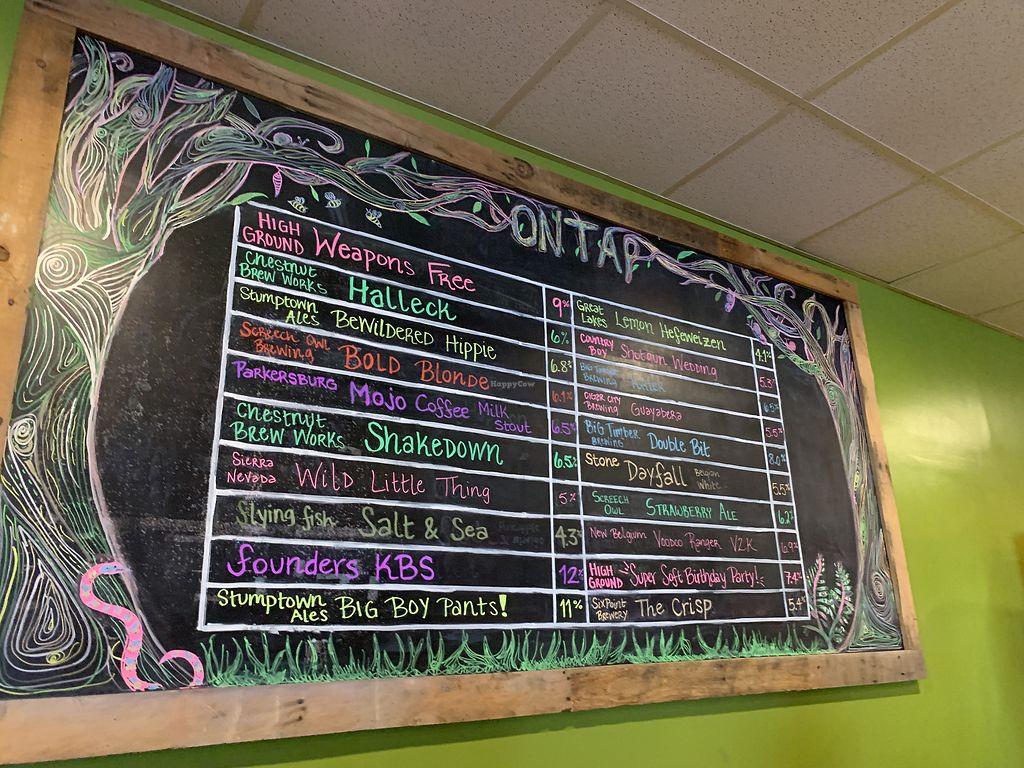 ON TAP
HIGH GROUND Weapons Free 9%
Chestnut Brew Works Halleck 6%
Stumptown Ales Bewildered Hippie 6.8%
Screech Owl Brewing Bold Blonde 6.1%
Parkersburg Mojo Coffee Milk Stout 6.5%
Chestnut Brew Works Shakedown 6.5%
Sierra Nevada Wild Little Thing 5%
flying fish Salt & Sea 4.3
founders KBS 12%
Stumptown Ales Big Boy Pants! 11%
Great Lakes Lemon Hefeweizen 4.1%
Country Boy Shotgun Wedding 5.3%
Big Timber Brewing Porter
Cigar City Brewing Guayabera 5.5%
Big Timber Brewing Double Bit 8.0%
Stone Dayfall Belgian White 5.5%
Screech Owl Strawberry Ale 6.2%
New Belgium Voodoo Ranger V2K 6.9%
High Ground Super Soft Birthday Party! 7.4%
SixPoint Brewery The Crisp 5.4%
HappyCow